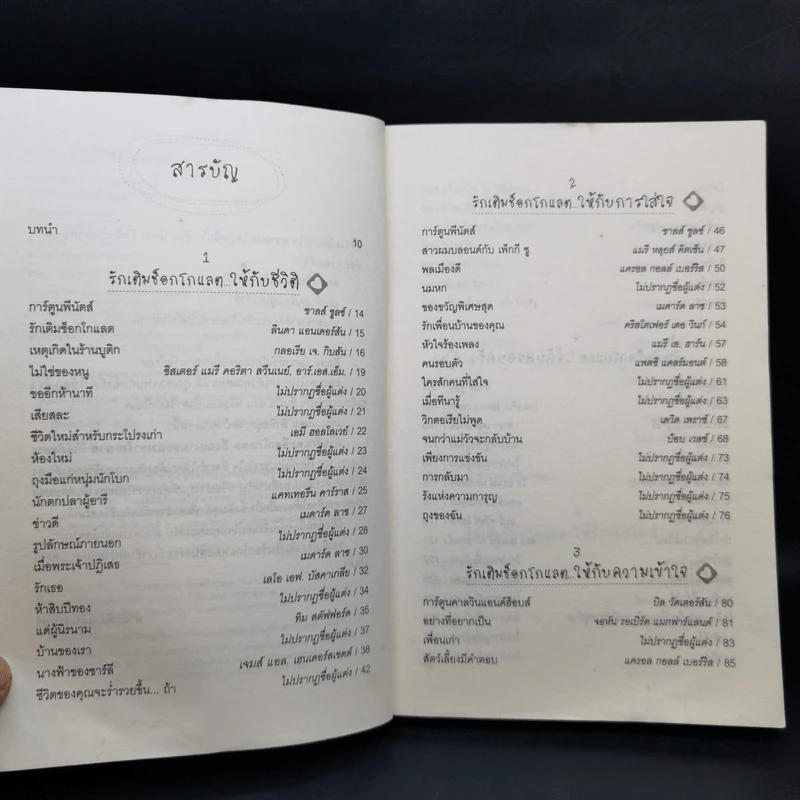 สารบัญ
บทนำ 10
1
รักเติมช็อกโกแลต...ให้กับชีวิต
การ์ตูนพีนัตส์ ชาลส์ ชูลซ์ / 14
รักเติมช็อกโกแลต ลินดา แอนเดอร์สัน / 15
เหตุเกิดในร้านบูติก กลอเรีย เจ. กิบสัน / 16
ไม่ใช่ของหนู ซิสเตอร์ แมรี คอริตา สวีนเนย์, อาร์.เอส.เอ็ม. / 19
ขออีกห้านาที ไม่ปรากฏชื่อผู้แต่ง / 20
เสียสละ ไม่ปรากฏชื่อผู้แต่ง / 21
ชีวิตใหม่สำหรับกระโปรงเก่า เอมี ฮอลโลเวย์ / 22
ห้องใหม่ ไม่ปรากฏชื่อผู้แต่ง / 23
ถุงมือแก่หนุ่มนักโบก ไม่ปรากฏชื่อผู้แต่ง / 24
นักตกปลาผู้อารี แคทเทอรีน คาร์ราส / 25
ข่าวดี เมดาร์ด ลาซ / 27
รูปลักษณ์ภายนอก ไม่ปรากฏชื่อผู้แต่ง / 28
เมื่อพระเจ้าปฏิเสธ เมดาร์ด ลาซ / 30
รักเธอ เลโอ เอฟ. บัสคาเกลีย / 32
ห้าสิบปีทอง ไม่ปรากฏชื่อผู้แต่ง / 34
แด่ผู้นิรนาม ทิม สตัฟฟอร์ด / 35
บ้านของเรา ไม่ปรากฏชื่อผู้แต่ง / 37
นางฟ้าของชาร์ลี เจมส์ แอล. เฮนเดอร์สเชดต์ / 38
ชีวิตของคุณจะร่ำรวยขึ้น... ถ้า ไม่ปรากฏชื่อผู้แต่ง / 42
2
รักเติมช็อกโกแลต...ให้กับการใส่ใจ
การ์ตูนพีนัตส์ ชาลส์ ชูลซ์ / 46
สาวผมบลอนด์กับ เพ็กกี ซู แมรี หลุยส์ คิตเซ็น / 47
พลเมืองดี แครอล กอลล์ เบอร์ริส / 50
นมหก ไม่ปรากฏชื่อผู้แต่ง / 52
ของขวัญพิเศษสุด เมดาร์ด ลาซ / 53
รักเพื่อนบ้านของคุณ คริสโตเฟอร์ เดอ วินก์ / 54
หัวใจร้องเพลง แมรี เอ. ฮาร์น / 57
คนรอบตัว แพตซี แคลร์มอนต์ / 58
ใครสักคนที่ใส่ใจ ไม่ปรากฏชื่อผู้แต่ง / 61
เมื่อทีนารู้ ไม่ปรากฏชื่อผู้แต่ง / 63
วิกตอเรียไม่พูด เดวิด เพราซ์ / 67
จนกว่าแม่วัวจะกลับบ้าน บ๊อบ เวลช์ / 68
เพียงการแข่งขัน ไม่ปรากฏชื่อผู้แต่ง / 73
การกลับมา ไม่ปรากฏชื่อผู้แต่ง / 74
รังแห่งความการุญ ไม่ปรากฏชื่อผู้แต่ง / 75
ถุงของฉัน ไม่ปรากฏชื่อผู้แต่ง / 76
3
รักเติมช็อกโกแลต...ให้กับความเข้าใจ
การ์ตูนคาลวินแอนด์ฮ็อบส์ บิล วัตเตอร์สัน / 80
อย่างที่อยากเป็น จอห์น รอเบิร์ต แมกฟาร์แลนด์ / 81
เพื่อนเก่า ไม่ปรากฏชื่อผู้แต่ง / 83
สัตว์เลี้ยงมีคำตอบ แครอล กอลล์ เบอร์ริส / 85